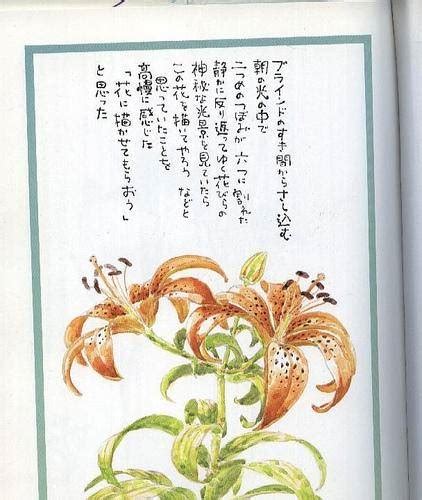 ブラインドのすき間からさし込む
朝の光の中で
二つめのつぼみが 六つに 割れた
静かに反り返ってゆく花びらの
神秘な光景を見ていたら
この花を描いてやろう などと
思っていたことを
高慢に感じた
「花に描かせてもらおう」
と思った